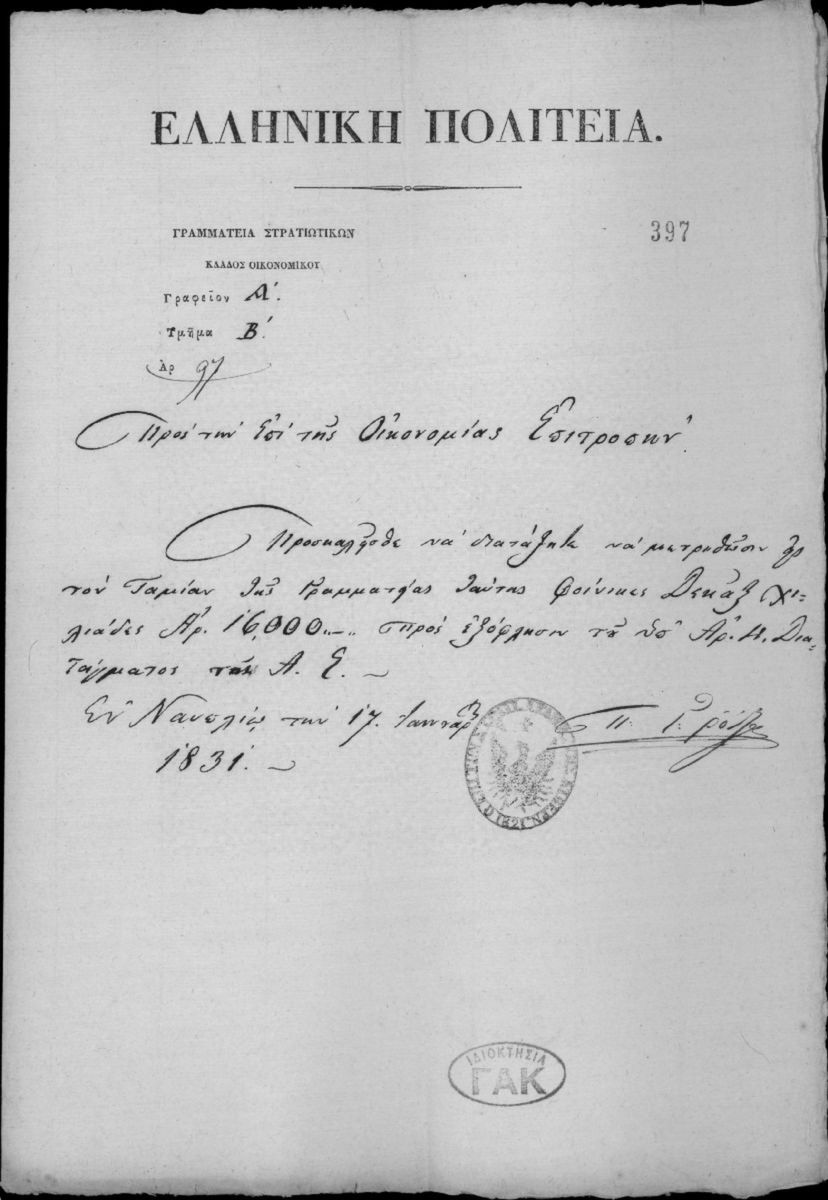 ΕΛΛΗΝΙΚΗ ΠΟΛΙΤΕΙΑ.
ΓΡΑΜΜΑΤΕΙΑ ΣΤΡΑΤΙΩΤΙΚΩΝ
397
ΚΛΑΔΟΣ ΟΙΚΟΝΟΜΙΚΟΥ
Γραφεῖον Α΄.
Τμῆμα Β΄.
Ἀρ 97
Πρὸς τὴν ἐπὶ τῆς Οἰκονομίας Ἐπιτροπήν.
Προσκαλεῖσθε νὰ διατάξητε νὰ μετρηθῶσιν εἰς
τὸν Ταμίαν τῆς Γραμματείας ταύτης φοίνικες Δεκαὲξ χι-
λιάδες Ἀρ. 16,000 πρὸς ἐξόφλησιν τοῦ ὑπ' Ἀρ. Δια-
τάγματος τῆς Α. Ε.
Ἐν Ναυπλίῳ τὴν 17. Ἰανουαρ
1831.
ΙΔΙΟΚΤΗΣΙΑ
ΓΑΚ